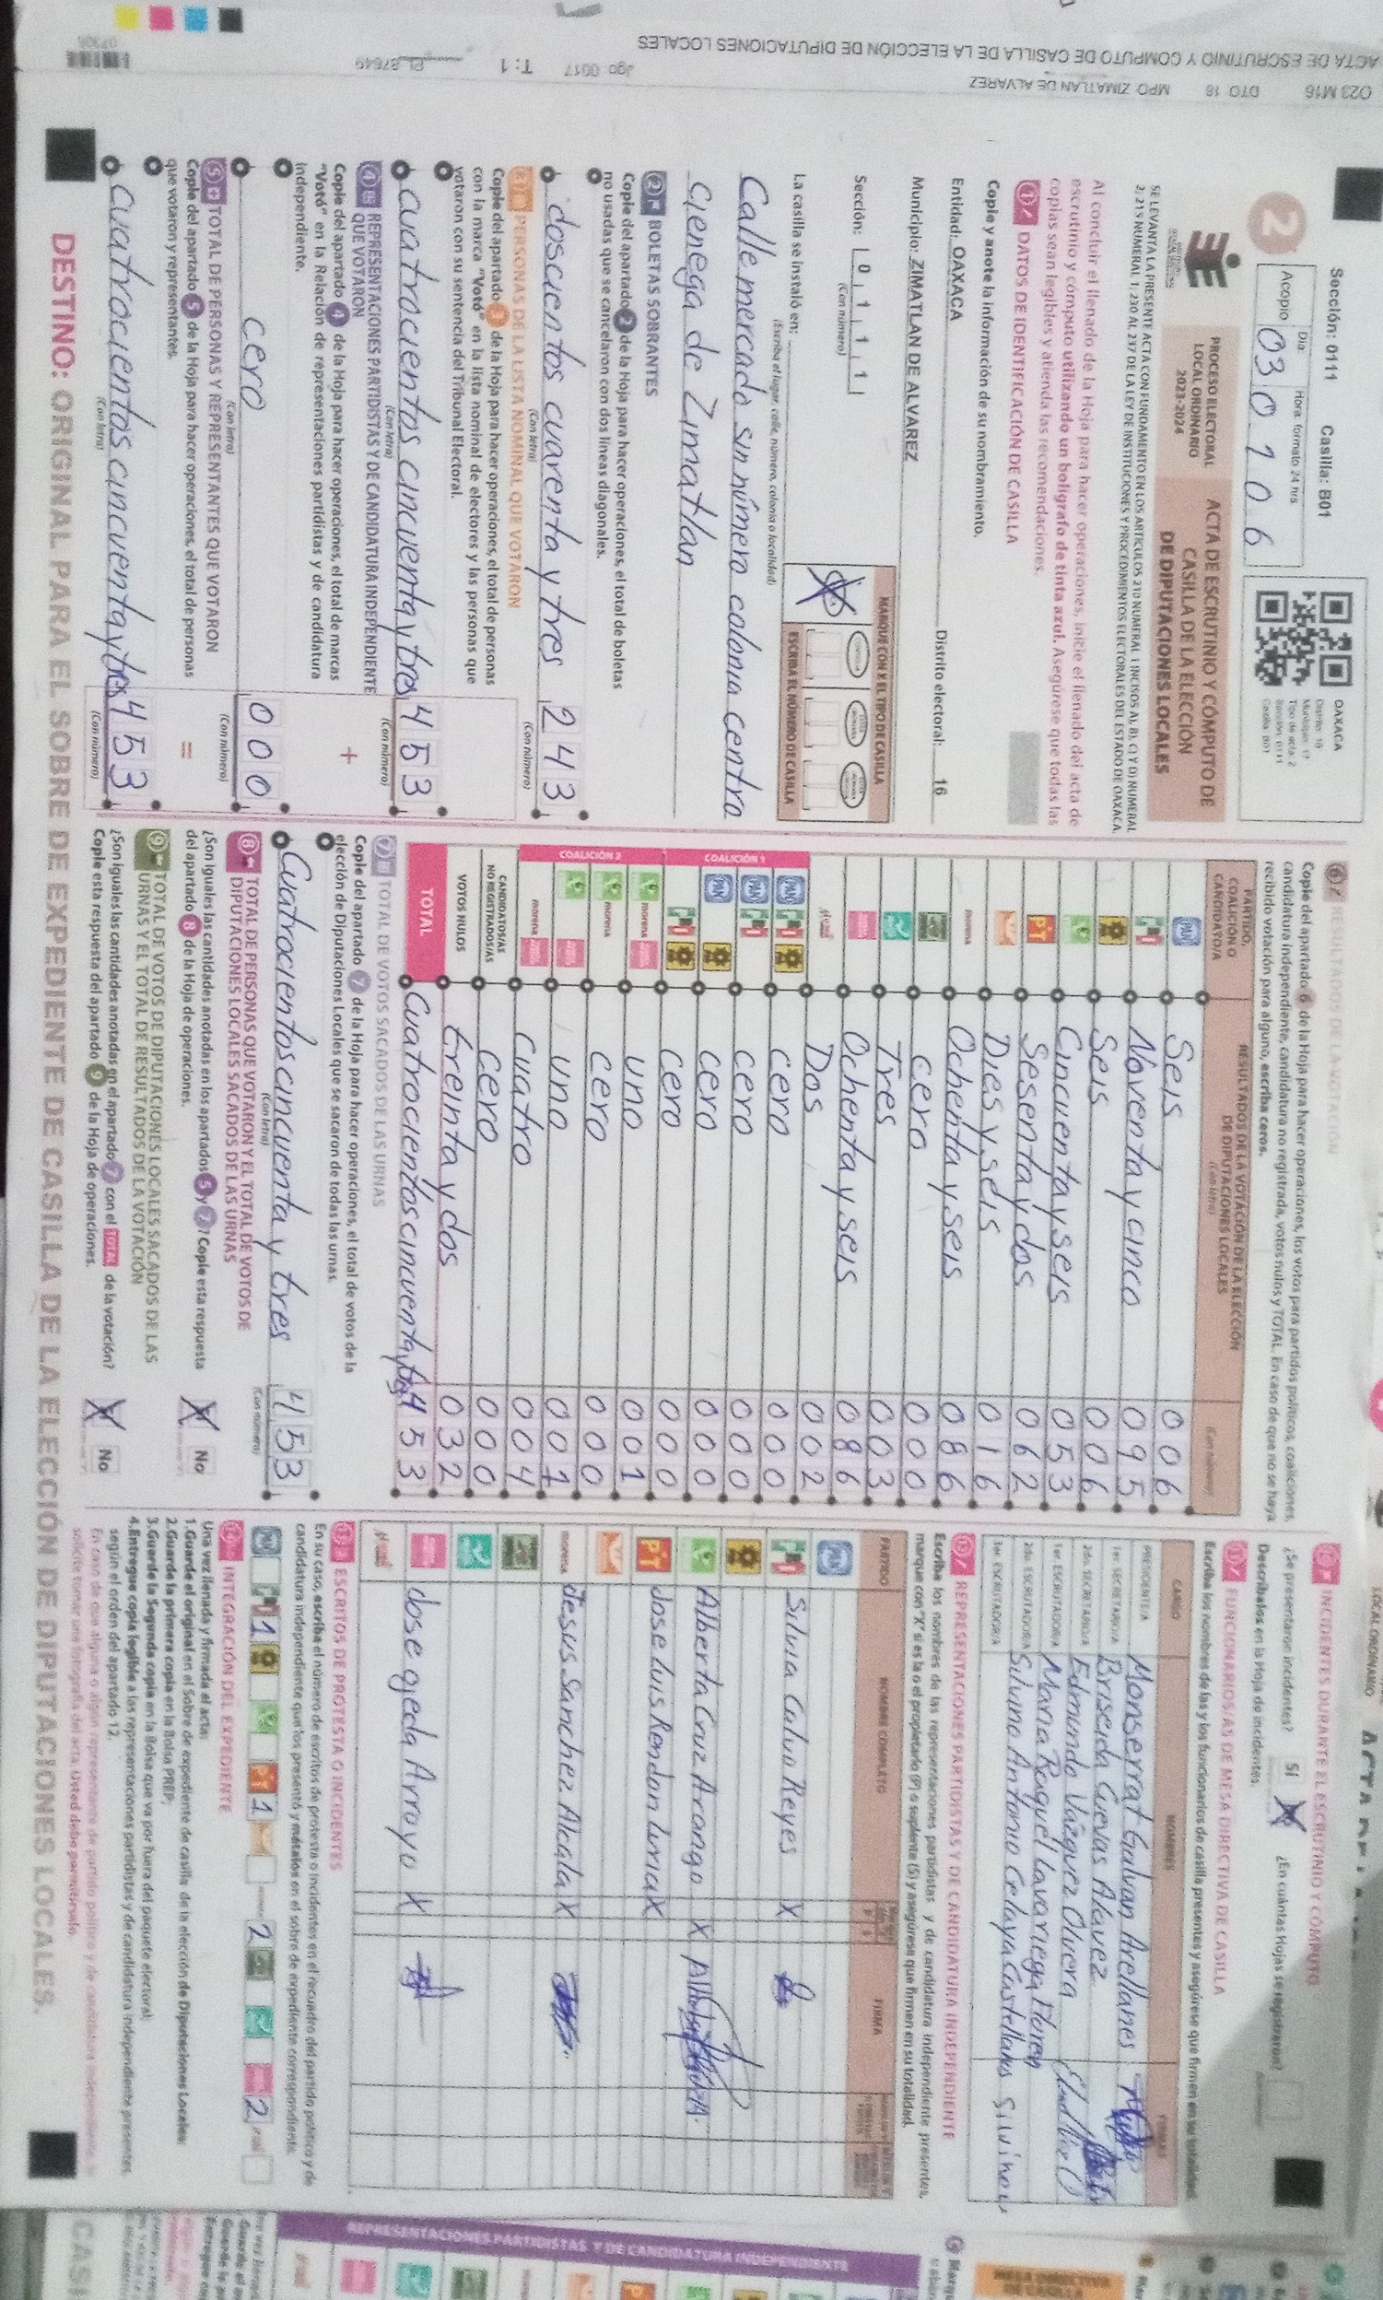 O23 M16 DTO 16 MPO ZIMATLAN DE ALVAREZ
ACTA DE ESCRUTINIO Y COMPUTO DE CASILLA DE LA ELECCIÓN DE DIPUTACIONES LOCALES
T: 1
Sección: 0111 Casilla: B01
2
Acopio
Día
Hora formato 24 hrs.
03 01 06
OAXACA
PROCESO ELECTORAL
LOCAL ORDINARIO
2023-2024
ACTA DE ESCRUTINIO Y CÓMPUTO DE
CASILLA DE LA ELECCIÓN
DE DIPUTACIONES LOCALES
Al concluir el llenado de la Hoja para hacer operaciones, inicie el llenado del acta de
escrutinio y cómputo utilizando un bolígrafo de tinta azul. Asegúrese que todas las
copias sean legibles y atienda las recomendaciones.
1 DATOS DE IDENTIFICACIÓN DE CASILLA
Copie y anote la información de su nombramiento.
Entidad: OAXACA Distrito electoral: 16
Municipio: ZIMATLAN DE ALVAREZ
Sección: 0 1 1 1
(Con número)
MARQUE CON X EL TIPO DE CASILLA
ESCRIBA EL NÚMERO DE CASILLA
La casilla se instaló en:
(Escriba el lugar, calle, número, colonia o localidad)
Calle mercado sin número colonia centro
Cienega de Zimatlan
2 BOLETAS SOBRANTES
Copie del apartado 2 de la Hoja para hacer operaciones, el total de boletas
no usadas que se cancelaron con dos líneas diagonales.
doscientos cuarenta y tres 243
(Con letra) (Con número)
3 PERSONAS DE LA LISTA NOMINAL QUE VOTARON
Copie del apartado 3 de la Hoja para hacer operaciones, el total de personas
con la marca "Votó" en la lista nominal de electores y las personas que
votaron con su sentencia del Tribunal Electoral.
cuatrocientos cincuenta y tres 453
(Con letra) (Con número)
4 REPRESENTACIONES PARTIDISTAS Y DE CANDIDATURA INDEPENDIENTE
QUE VOTARON
Copie del apartado 4 de la Hoja para hacer operaciones, el total de marcas
"Votó" en la Relación de representaciones partidistas y de candidatura
independiente.
+
cero 000
(Con letra) (Con número)
5 TOTAL DE PERSONAS Y REPRESENTANTES QUE VOTARON
Copie del apartado 5 de la Hoja para hacer operaciones, el total de personas
que votaron y representantes.
=
cuatrocientos cincuenta y tres 453
(Con letra) (Con número)
6 RESULTADOS DE LA VOTACIÓN
Copie del apartado 6 de la Hoja para hacer operaciones, los votos para partidos políticos, coaliciones,
candidatura independiente, candidatura no registrada, votos nulos y TOTAL. En caso de que no se haya
recibido votación para alguno, escriba ceros.
PARTIDO,
COALICIÓN O
CANDIDATO/A
RESULTADOS DE LA VOTACIÓN DE LA ELECCIÓN
DE DIPUTACIONES LOCALES
(Con letra)
(Con número)
PAN Seis 006
PRI Noventa y cinco 095
Seis 006
Cincuenta y seis 053
PT Sesenta y dos 062
Dies y seis 016
morena Ochenta y seis 086
cero 000
Tres 003
Ochenta y seis 086
Dos 002
COALICIÓN 1
cero 000
cero 000
cero 000
cero 000
COALICIÓN 2
uno 001
cero 000
uno 001
cuatro 004
CANDIDATOS/AS
NO REGISTRADOS/AS cero 000
VOTOS NULOS treinta y dos 032
TOTAL Cuatrocientos cincuenta y tres 453
7 TOTAL DE VOTOS SACADOS DE LAS URNAS
Copie del apartado 7 de la Hoja para hacer operaciones, el total de votos de la
elección de Diputaciones Locales que se sacaron de todas las urnas.
Cuatrocientos cincuenta y tres 453
(Con letra) (Con número)
8 TOTAL DE PERSONAS QUE VOTARON Y EL TOTAL DE VOTOS DE
DIPUTACIONES LOCALES SACADOS DE LAS URNAS
¿Son iguales las cantidades anotadas en los apartados 5 y 7? Copie esta respuesta
del apartado 8 de la Hoja de operaciones.
No
9 TOTAL DE VOTOS DE DIPUTACIONES LOCALES SACADOS DE LAS
URNAS Y EL TOTAL DE RESULTADOS DE LA VOTACIÓN
¿Son iguales las cantidades anotadas en el apartado 7 con el TOTAL de la votación?
Copie esta respuesta del apartado 9 de la Hoja de operaciones.
No
INCIDENTES DURANTE EL ESCRUTINIO Y CÓMPUTO
¿Se presentaron incidentes? Sí
¿En cuántas Hojas se registraron?
Descríbalos en la Hoja de incidentes.
FUNCIONARIOS/AS DE MESA DIRECTIVA DE CASILLA
Escriba los nombres de las y los funcionarios de casilla presentes y asegúrese que firmen en su totalidad.
CARGO NOMBRES FIRMAS
PRESIDENTE/A Monserrat Galvan Arellanes
1er. SECRETARIO/A Briseida Cuevas Alavez
2do. SECRETARIO/A Edmundo Vázquez Olvera
1er. ESCRUTADOR/A Maria Raquel Lavariega
2do. ESCRUTADOR/A Silvino Antonio Celaya Castellanos
3er. ESCRUTADOR/A
REPRESENTACIONES PARTIDISTAS Y DE CANDIDATURA INDEPENDIENTE
Escriba los nombres de las representaciones partidistas y de candidatura independiente presentes,
marque con "X" si es la o el propietario (P) o suplente (S) y asegúrese que firmen en su totalidad.
PARTIDO NOMBRE COMPLETO FIRMA
Silvia Calvo Reyes X
Alberta Cruz Arango X
PT Jose Luis Rendon Luna X
morena Jesus Sanchez Alcala X
Jose Ojeda Arroyo X
ESCRITOS DE PROTESTA O INCIDENTES
En su caso, escriba el número de escritos de protesta o incidentes en el recuadro del partido político y de
candidatura independiente que los presentó y métalos en el sobre de expediente correspondiente.
1 1 2 2
INTEGRACIÓN DEL EXPEDIENTE
Una vez llenada y firmada el acta:
1.Guarde el original en el Sobre de expediente de casilla de la elección de Diputaciones Locales;
2.Guarde la primera copia en la Bolsa PREP;
3.Guarde la Segunda copia en la Bolsa que va por fuera del paquete electoral;
4.Entregue copia legible a las representaciones partidistas y de candidatura independiente presentes,
según el orden del apartado 12.
DESTINO: ORIGINAL PARA EL SOBRE DE EXPEDIENTE DE CASILLA DE LA ELECCIÓN DE DIPUTACIONES LOCALES.
REPRESENTACIONES PARTIDISTAS Y DE CANDIDATURA INDEPENDIENTE